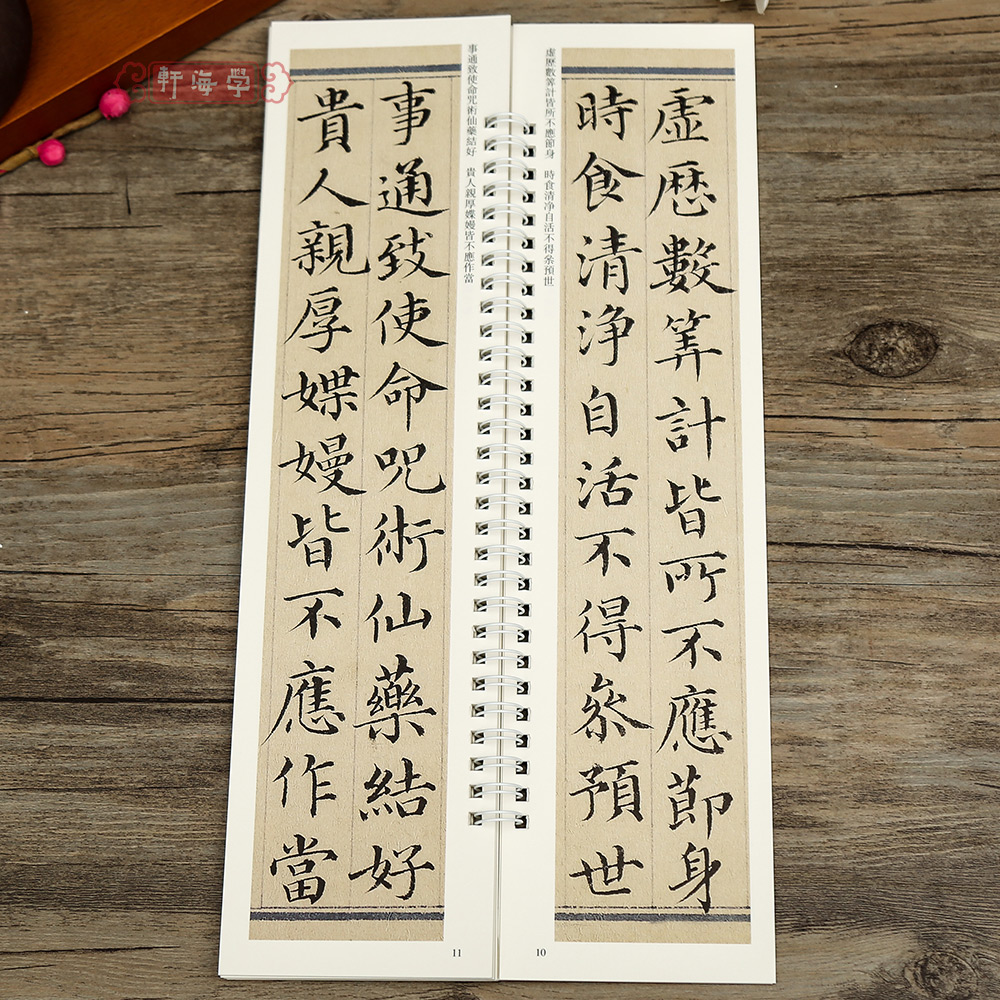 軒海学
虛歷數筭計皆所不應節身 時食清淨自活不得叅預世
虛歷數筭計皆所不應節身
時食清淨自活不得叅預世
10
事通致使命呪術仙藥結好 貴人親厚媟嫚皆不應作當
事通致使命呪術仙藥結好
貴人親厚媟嫚皆不應作當
11